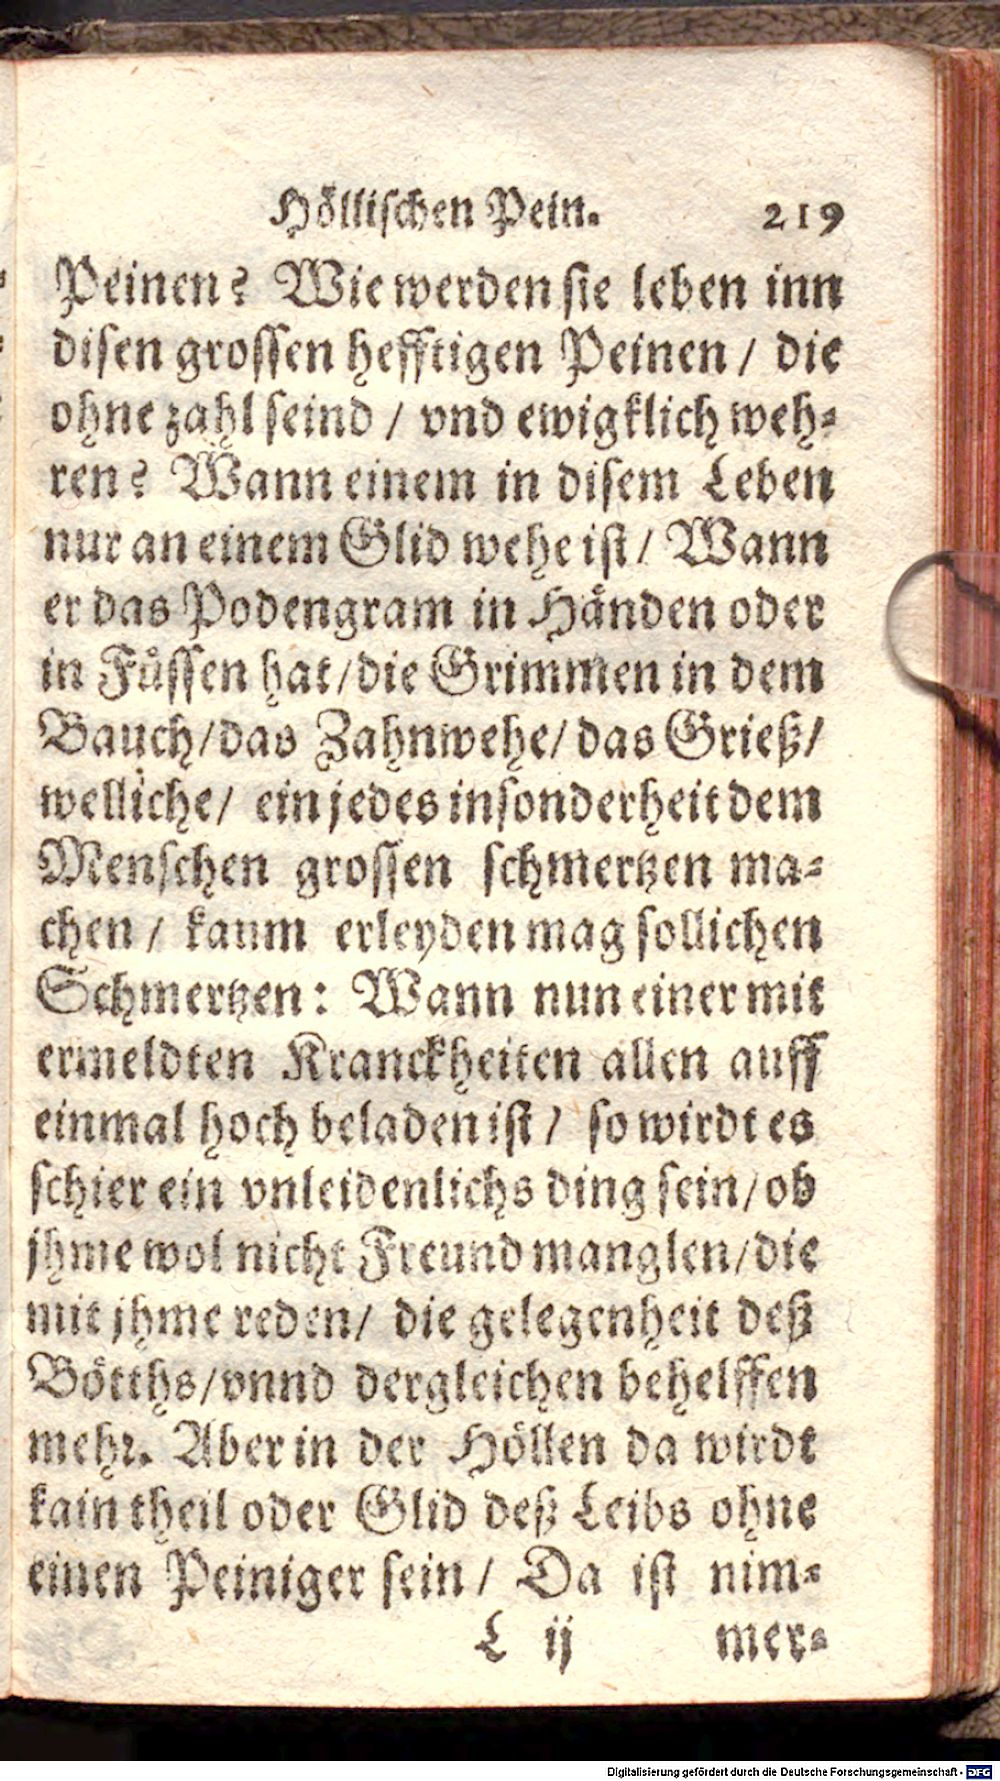 Höllischen Pein. 219
Peinen? Wie werden sie leben inn
disen grossen hefftigen Peinen / die
ohne zahl seind / vnd ewigklich weh-
ren? Wann einem in disem Leben
nur an einem Glid wehe ist / Wann
er das Podengram in Händen oder
in Füssen hat / die Grimmen in dem
Bauch / das Zahnwehe / das Grieß /
welliche / ein jedes insonderheit dem
Menschen grossen schmertzen ma-
chen / kaum erleyden mag sollichen
Schmertzen: Wann nun einer mit
ermeldten Kranckheiten allen auff
einmal hoch beladen ist / so wirdt es
schier ein vnleidenlichs ding sein / ob
jhme wol nicht Freund manglen / die
mit jhme reden / die gelegenheit deß
Bötths / vnnd dergleichen behelffen
mehr. Aber in der Höllen da wirdt
kain theil oder Glid deß Leibs ohne
einen Peiniger sein / Da ist nim-
L ij mer-
Digitalisierung gefördert durch die Deutsche Forschungsgemeinschaft - DFG